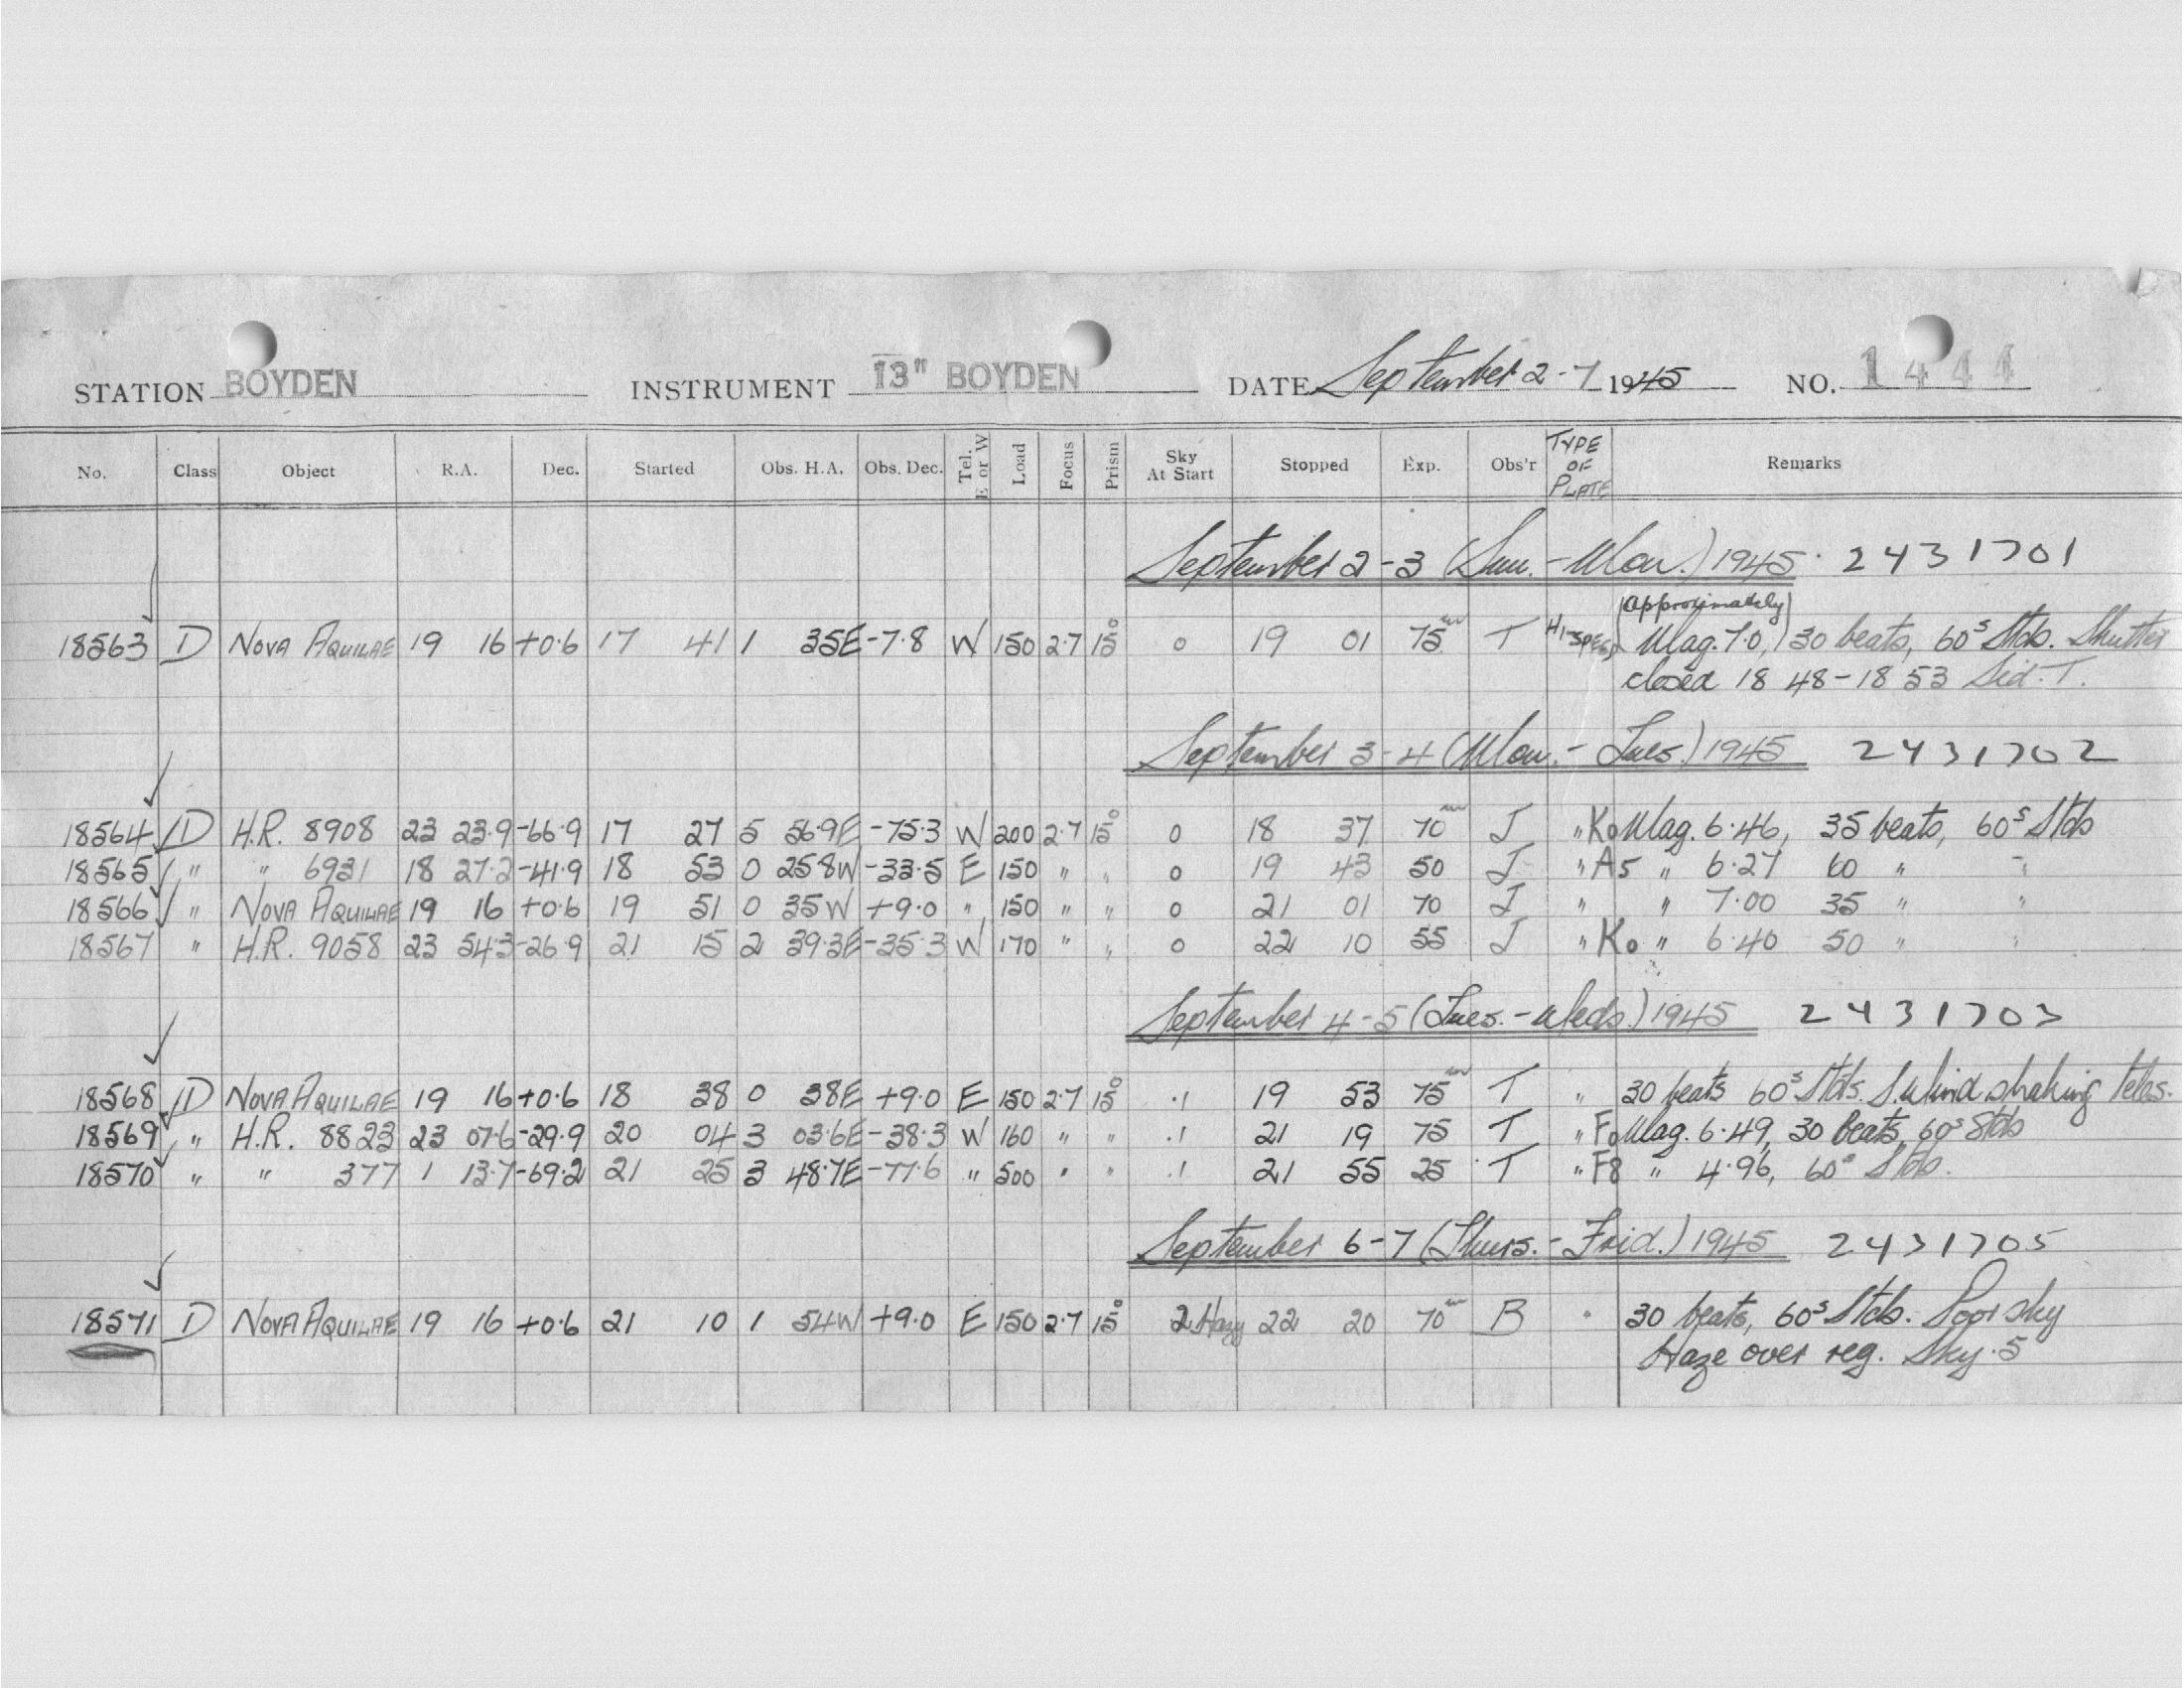 STATION BOYDEN INSTRUMENT 13" BOYDEN DATE September 2-7 1945 NO. 1444
No. Class Object R.A. Dec. Started Obs. H.A. Obs. Dec. Tel. E or W Load Focus Prism Sky At Start Stopped Exp. Obs'r TYPE OF PLATE Remarks
September 2-3 (Sun.-Mon.) 1945. 2431701
18563 D NOVA AQUILAE 19 16 +0.6 17 41 1 35E -7.8 W 150 2.7 15° 0 19 01 75m T HI-SPEED Mag. 7.0, (approximately) 30 beats, 60s Stds. Shutter
closed 18 48-18 53 Sid. T.
September 3-4 (Mon.-Tues.) 1945 2431702
18564 D H.R. 8908 23 23.9 -66.9 17 27 5 56.9E -75.3 W 200 2.7 15° 0 18 37 70m J " K0 Mag. 6.46, 35 beats, 60s Stds
18565 " " 6931 18 27.2 -41.9 18 53 0 25.8W -33.5 E 150 " " 0 19 43 50 J " A5 " 6.27 60 " "
18566 " NOVA AQUILAE 19 16 +0.6 19 51 0 35W +9.0 " 150 " " 0 21 01 70 J " " 7.00 35 " "
18567 " H.R. 9058 23 54.3 -26.9 21 15 2 39.3E -35.3 W 170 " " 0 22 10 55 J " K0 " 6.40 50 " "
September 4-5 (Tues.-Weds.) 1945 2431703
18568 D NOVA AQUILAE 19 16 +0.6 18 38 0 38E +9.0 E 150 2.7 15° .1 19 53 75m T " 30 beats 60s Stds. S. Wind shaking teles.
18569 " H.R. 8823 23 07.6 -29.9 20 04 3 03.6E -38.3 W 160 " " .1 21 19 75 T " F0 Mag. 6.49, 30 beats, 60s Stds
18570 " " 377 1 13.7 -69.2 21 25 3 48.7E -77.6 " 500 " " .1 21 55 25 T " F8 " 4.96, 60s Stds.
September 6-7 (Thurs.-Frid.) 1945 2431705
18571 D NOVA AQUILAE 19 16 +0.6 21 10 1 54W +9.0 E 150 2.7 15° 2 Hazy 22 20 70m B " 30 beats, 60s Stds. Poor sky
Haze over reg. Sky .5